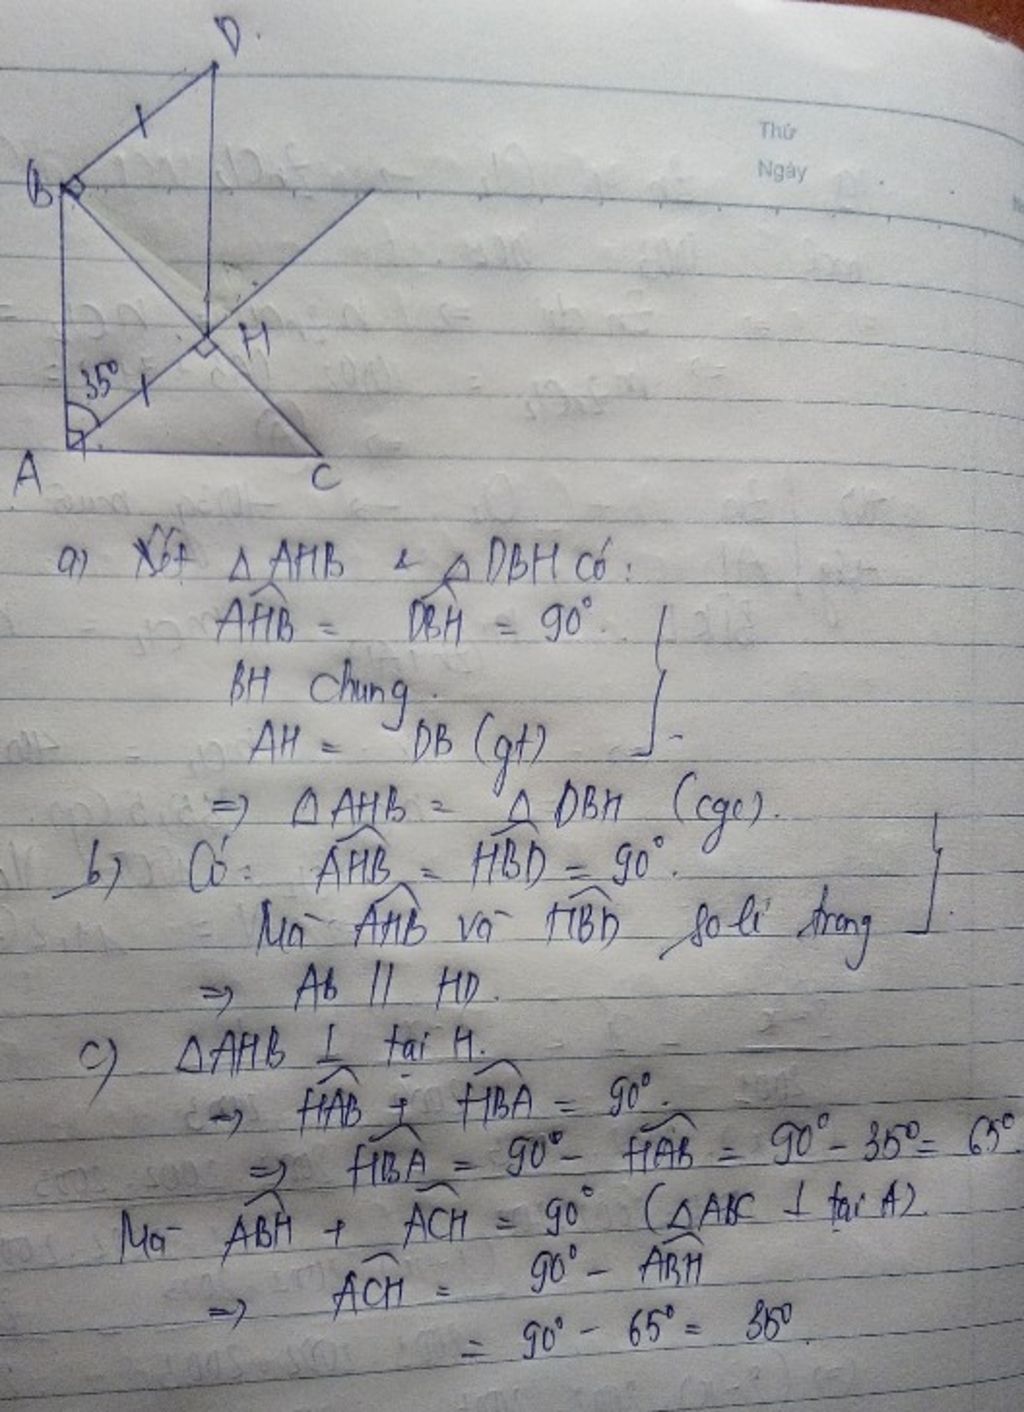 D.
Thứ
Ngày
B
H
35°
A
C
a) Xét △ AHB & △ DBH có:
AHB = DBH = 90°.
BH chung.
AH = DB (gt)
=> △ AHB = △ DBH (cgc).
b) Có: AHB = HBD = 90°.
Mà AHB và HBD so li trong
=> AB // HD.
c) △AHB ⊥ tại H.
=> HAB + HBA = 90°.
=> HBA = 90° - HAB = 90° - 35° = 65°.
Mà ABH + ACH = 90° (△ABC ⊥ tại A).
=> ACH = 90° - ABH
= 90° - 65° = 35°.